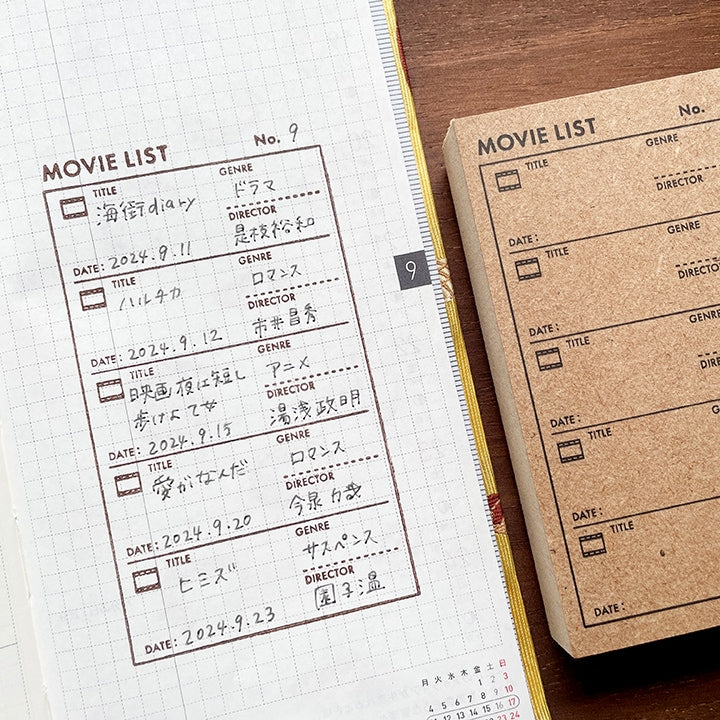 MOVIE LIST No. 9
TITLE GENRE
海街diary ドラマ
DIRECTOR
是枝裕和
DATE: 2024.9.11
TITLE GENRE
ハルチカ ロマンス
DIRECTOR
市井昌秀
DATE: 2024.9.12
TITLE GENRE
映画 夜は短し アニメ
歩けよ乙女 DIRECTOR
湯浅政明
DATE: 2024.9.15
TITLE GENRE
愛がなんだ ロマンス
DIRECTOR
今泉力哉
DATE: 2024.9.20
TITLE GENRE
ヒミズ サスペンス
DIRECTOR
園子温
DATE: 2024.9.23
9
月 火 水 木 金 土 日
1 2 3
4 5 6 7 8 9 10
11 12 13 14 15 16 17
23 24
MOVIE LIST No.
TITLE GENRE
DIRECTOR
DATE:
TITLE GENRE
DIRECTO
DATE:
TITLE GENRE
DIREC
DATE:
TITLE GE
DATE:
TITLE
DATE: